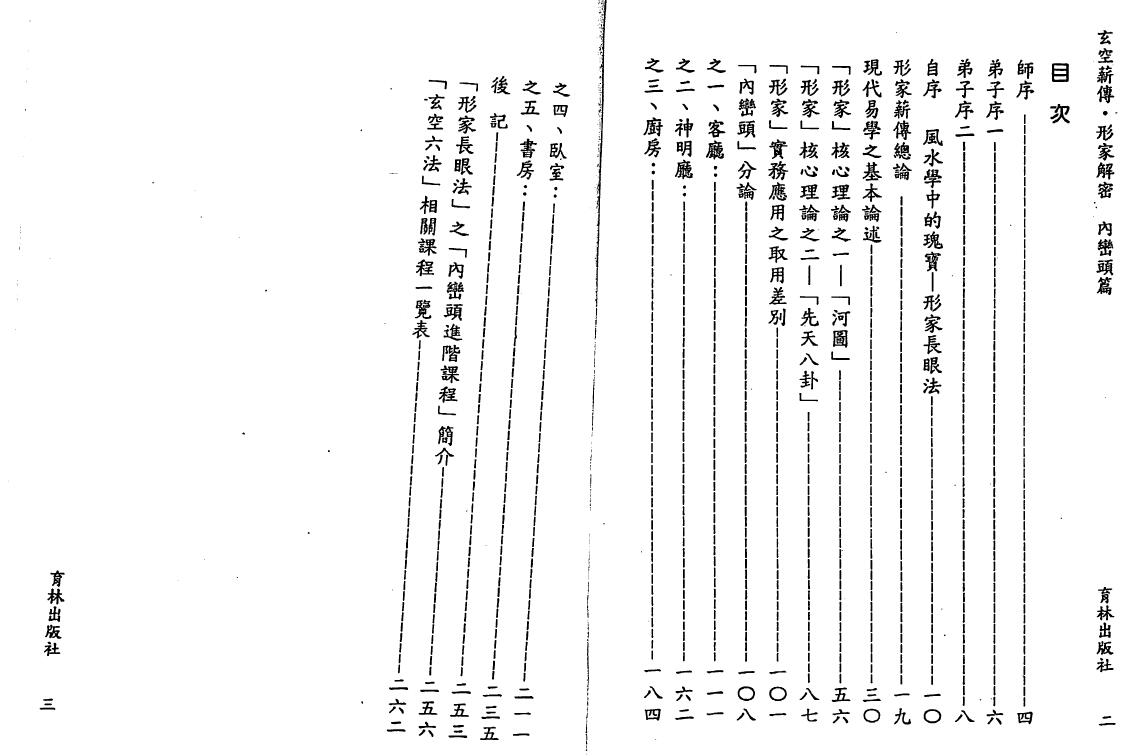 玄空薪傳・形家解密 內巒頭篇 育林出版社 二
目次
師序 四
弟子序一 六
弟子序二 八
自序 風水學中的瑰寶—形家長眼法 一〇
形家薪傳總論 一九
現代易學之基本論述 三〇
「形家」核心理論之一—「河圖」 五六
「形家」核心理論之二—「先天八卦」 八七
「形家」實務應用之取用差別 一〇一
「內巒頭」分論 一〇八
之一、客廳： 一一一
之二、神明廳： 一六二
之三、廚房： 一八四
之四、臥室： 二一一
之五、書房： 二三五
後記 二五三
「形家長眼法」之「內巒頭進階課程」簡介 二五六
「玄空六法」相關課程一覽表 二六二
育林出版社 三